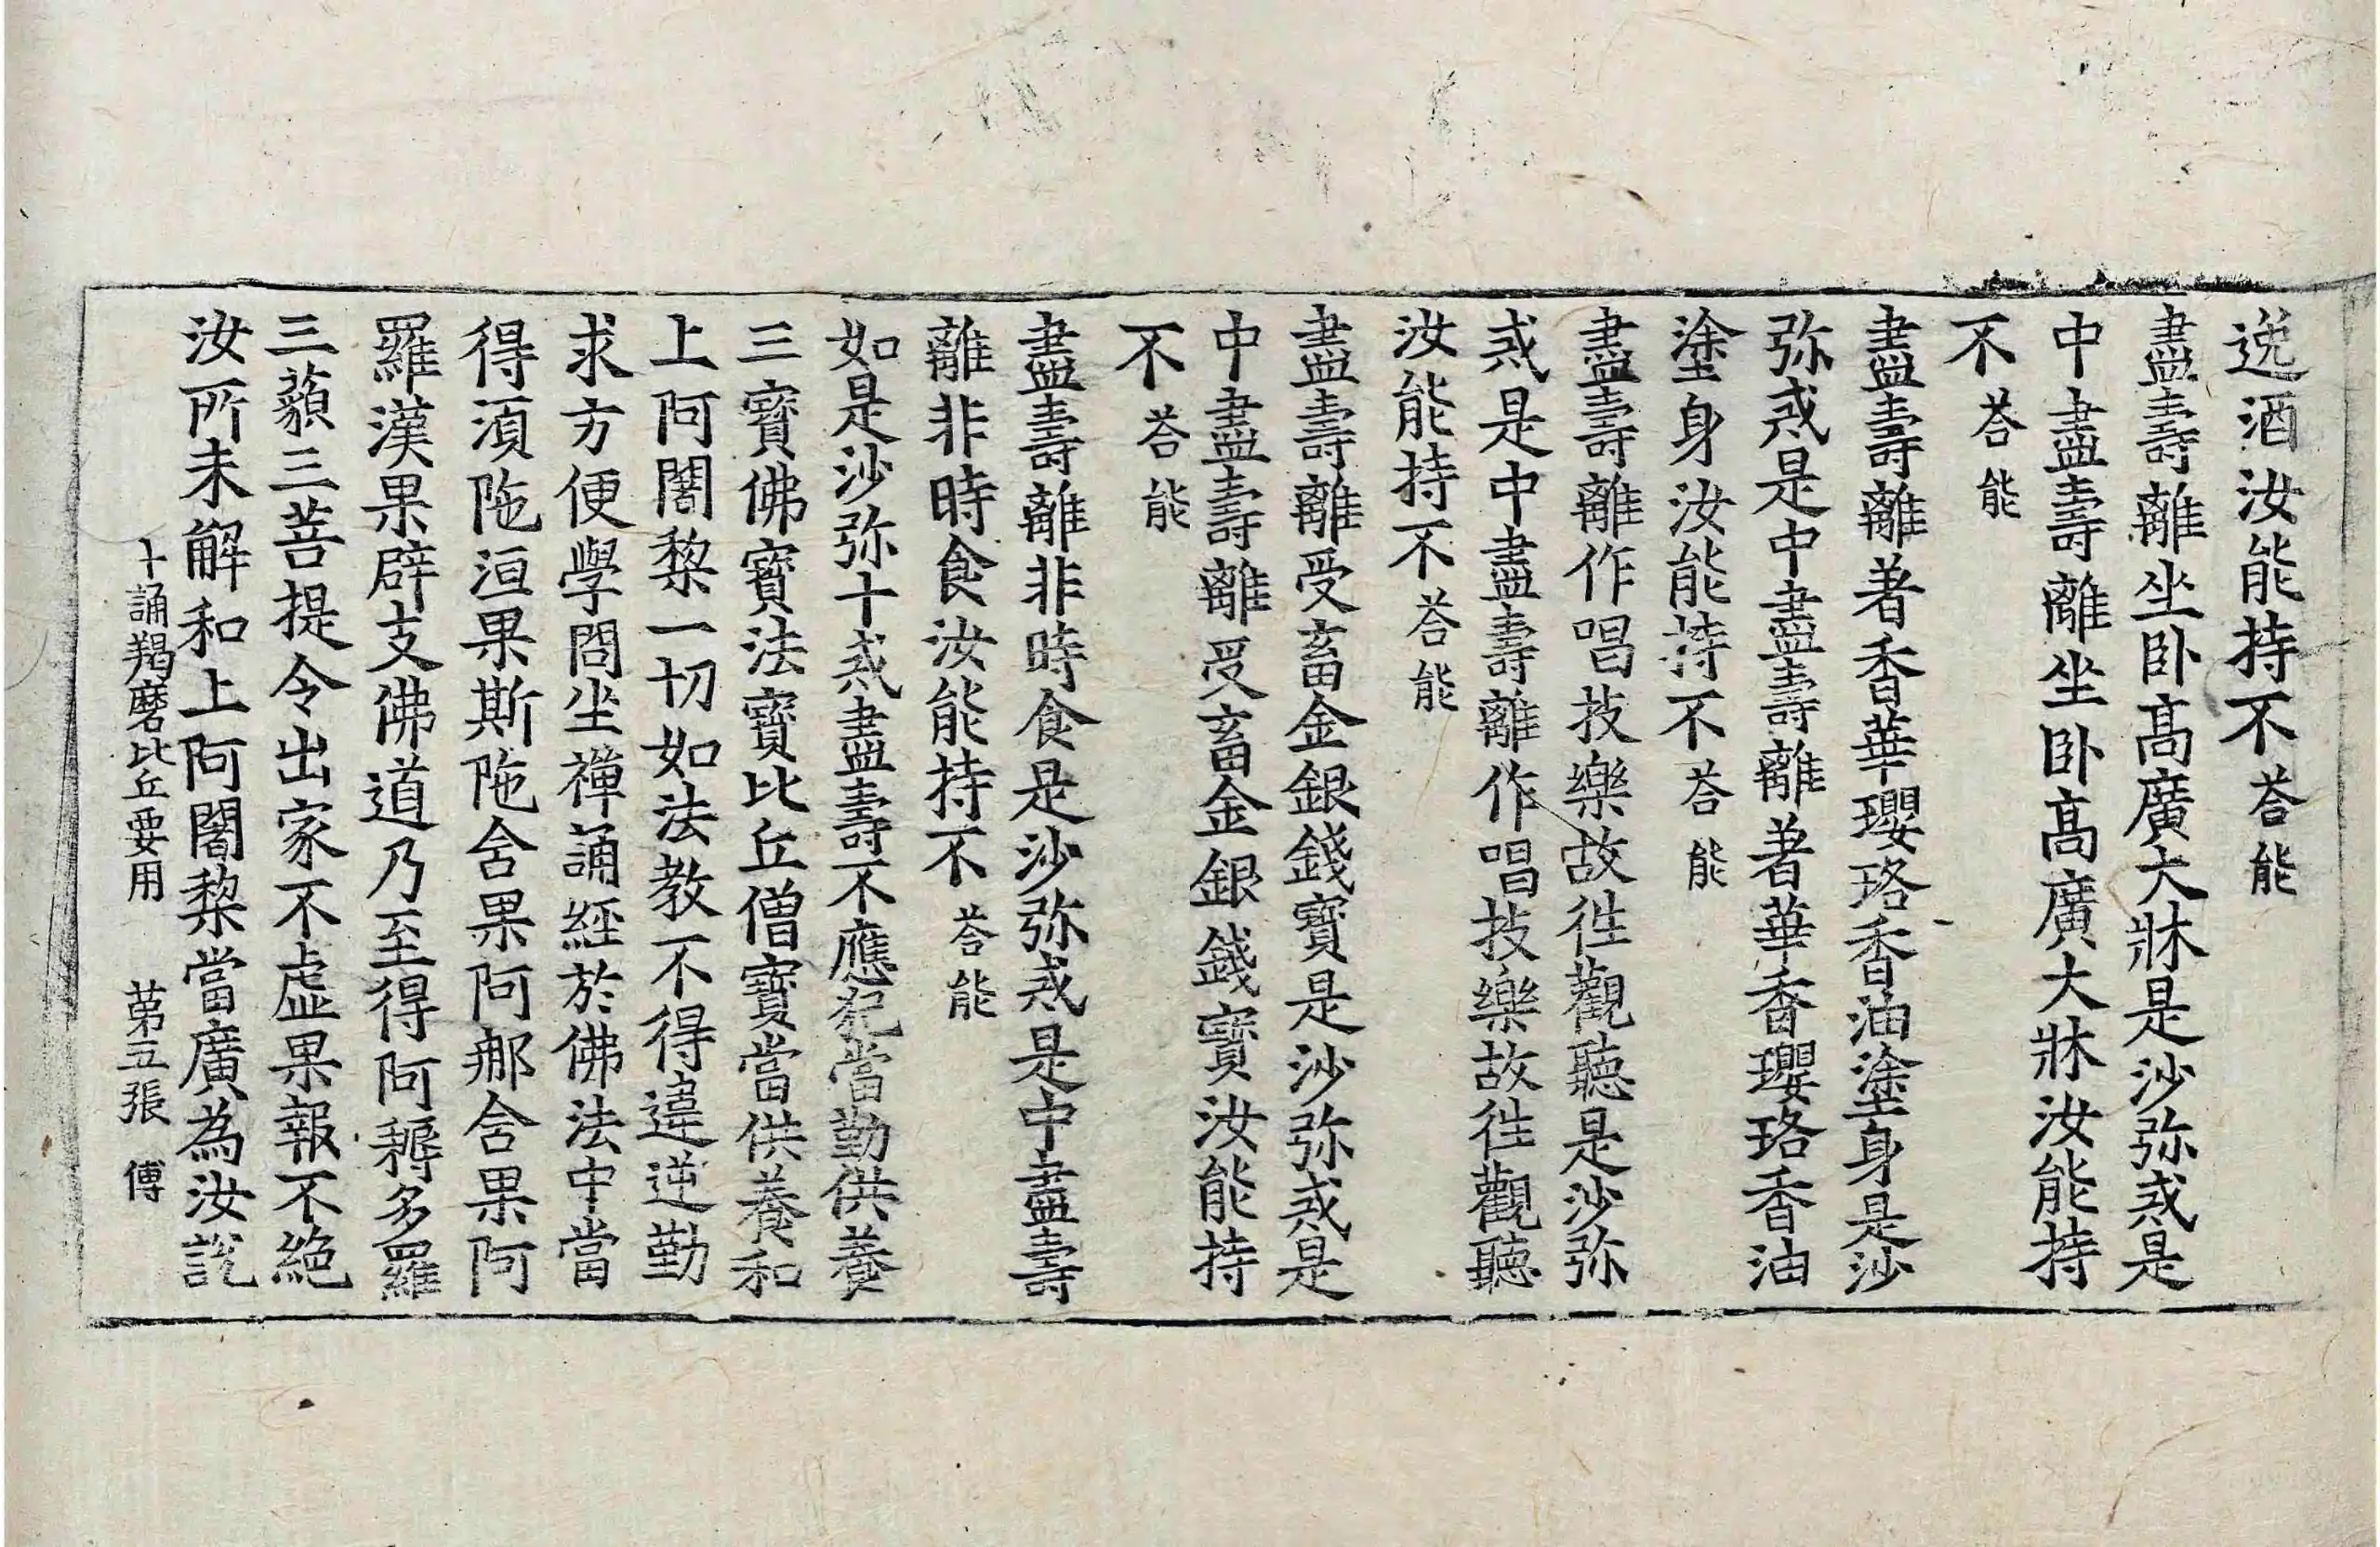 逸酒汝能持不荅能
盡壽離坐卧髙廣大牀是沙弥戒是
中盡壽離坐卧髙廣大牀汝能持
不荅能
盡壽離著香華瓔珞香油塗身是沙
弥戒是中盡壽離著華香瓔珞香油
塗身汝能持不荅能
盡壽離作唱技樂故往觀聽是沙弥
戒是中盡壽離作唱技樂故往觀聽
汝能持不荅能
盡壽離受畜金銀錢寶是沙弥戒是
中盡壽離受畜金銀錢寶汝能持
不荅能
盡壽離非時食是沙弥戒是中盡壽
離非時食汝能持不荅能
如是沙弥十戒盡壽不應犯當勤供養
三寶佛寶法寶比丘僧寶當供養和
上阿闍黎一切如法教不得違逆勤
求方便學問坐禪誦經於佛法中當
得湏陁洹果斯陁含果阿那含果阿
羅漢果辟支佛道乃至得阿耨多羅
三藐三菩提令出家不虛果報不絕
汝所未解和上阿闍黎當廣為汝說
十誦羯磨比丘要用 苐五張 傅